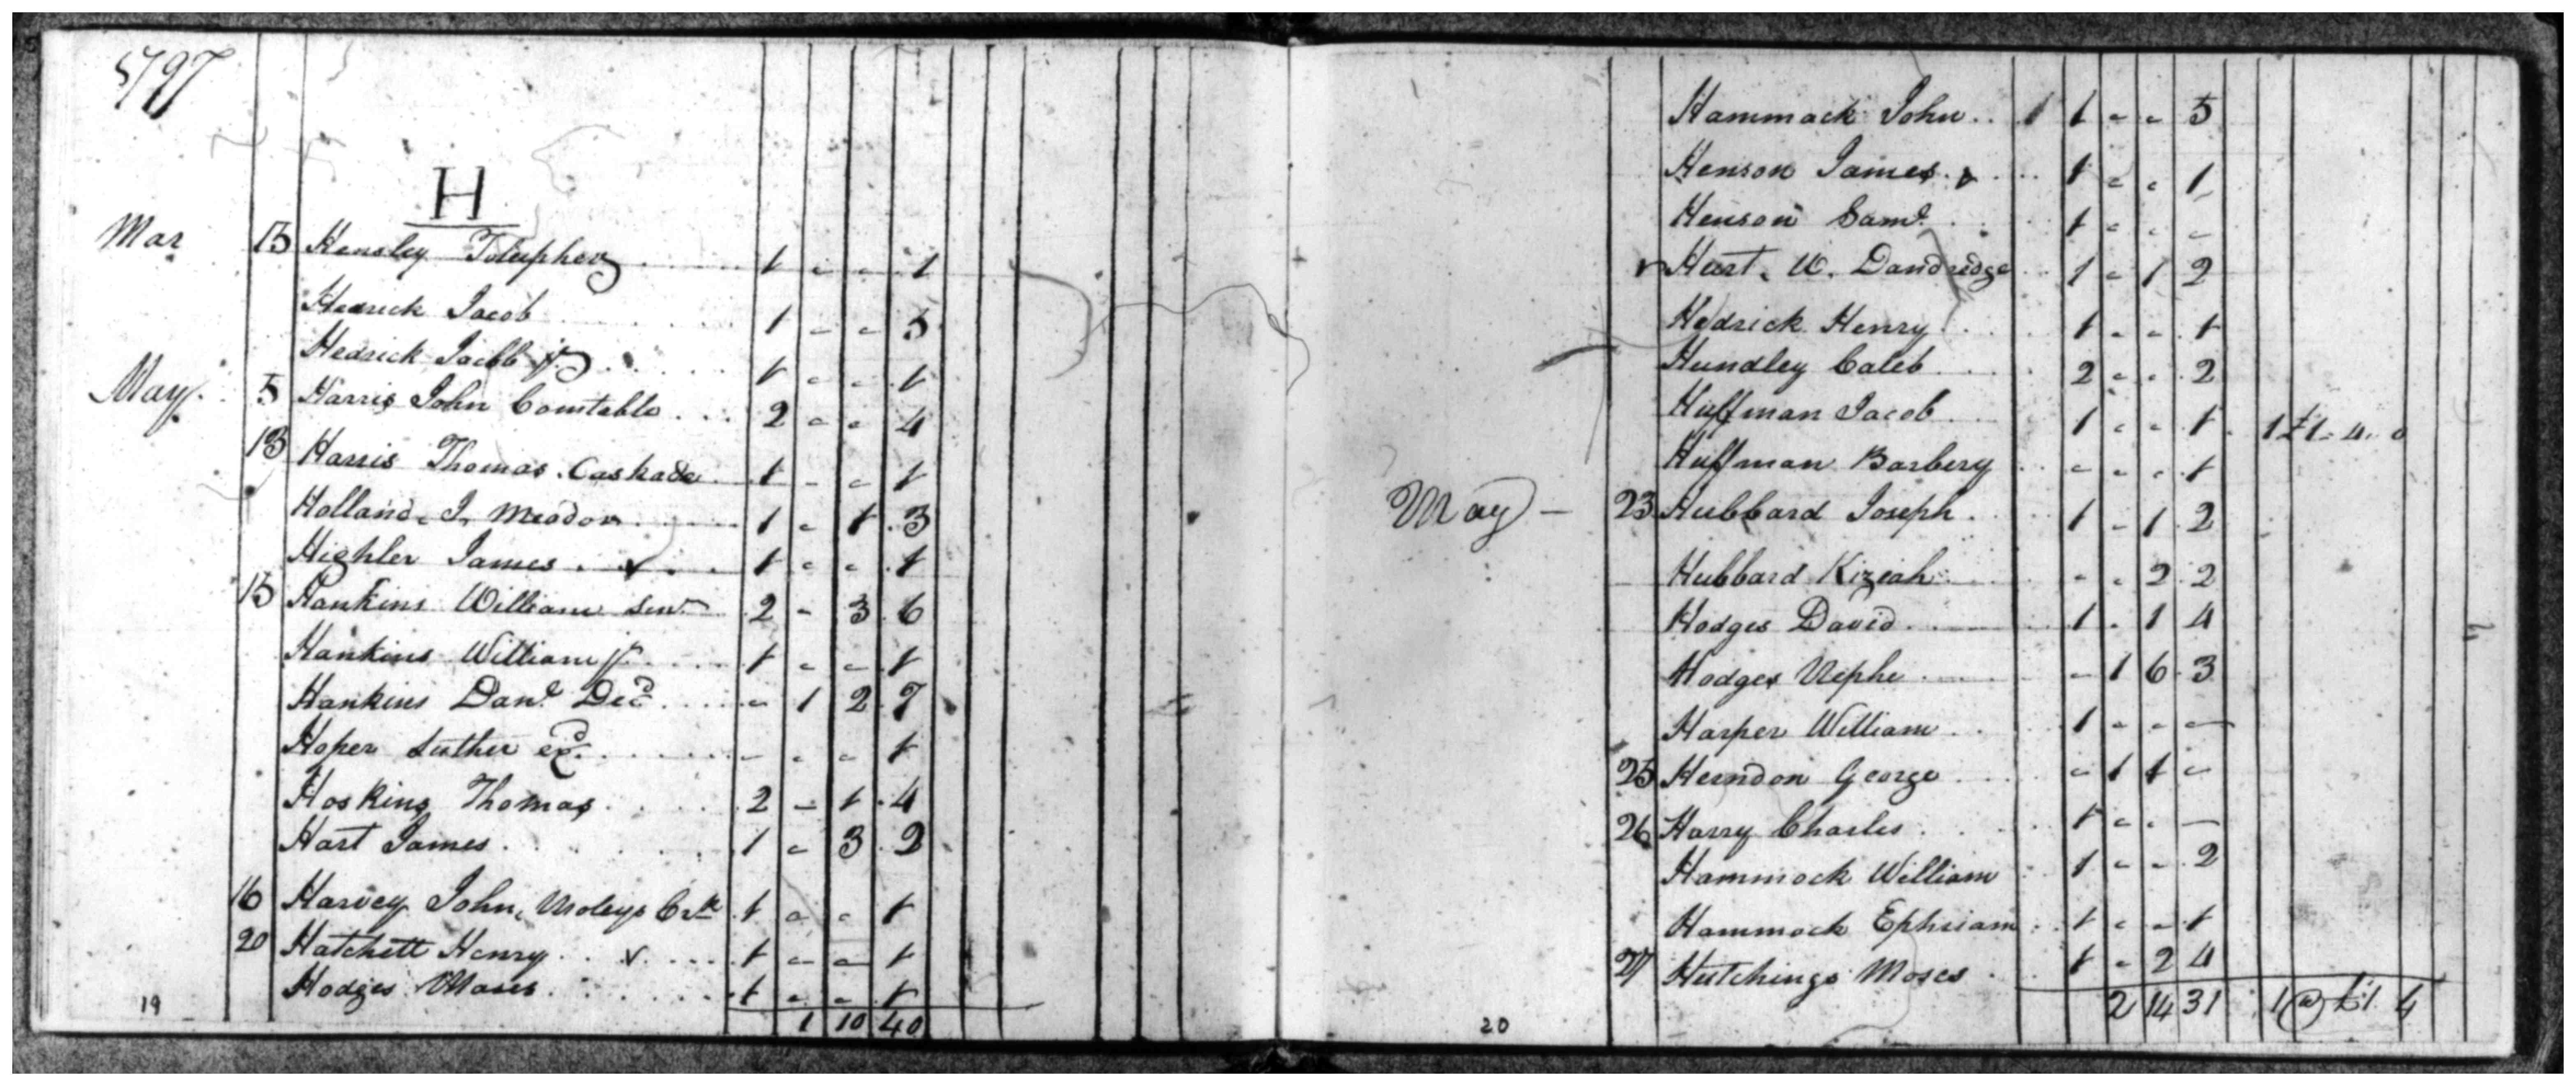 1797
H
Mar 13 Hensley Toleipher 1 - - 1
Hedrick Jacob 1 - - 5
Hedrick Jacob Jr. 1 - - 1
May 5 Harris John Constable 2 - - 4
13 Harris Thomas Caskade 1 - - 1
Holland J, Meador 1 - 1 3
Highler James v 1 - - 1
15 Hankins William Senr 2 - 3 6
Hankins William Jr 1 - - 1
Hankins Danl Decd - 1 2 7
Hoper Luther - - - 1
Hoskins Thomas 2 - 1 4
Hart James 1 - 3 2
16 Harvey John, Crk 1 - - 1
20 Hatchett Henry v 1 - - 1
Hodges Moses 1 - - 1
1 10 40
19
Hammack John 1 1 - - 5
Henson James v 1 - - 1
Henson Saml 1 - - -
v Hurt W. Dandredge 1 - 1 2
Hedrick Henry 1 - - 1
Hundley Caleb 2 - - 2
Huffman Jacob 1 - - 1 1 £1 - 4 - 0
Huffman Barbery - - - 1
May - 23 Hubbard Joseph 1 - 1 2
Hubbard Kiziah - - 2 2
Hodges David 1 - 1 4
Hodges - 1 6 3
Harper William 1 - - -
25 Herndon George - 1 1 -
26 Harry Charles 1 - - -
Hammock William 1 - - 2
Hammock Ephriam 1 - - 1
27 Hutchings Moses 1 - 2 4
2 14 31 1 @ £1 4
20